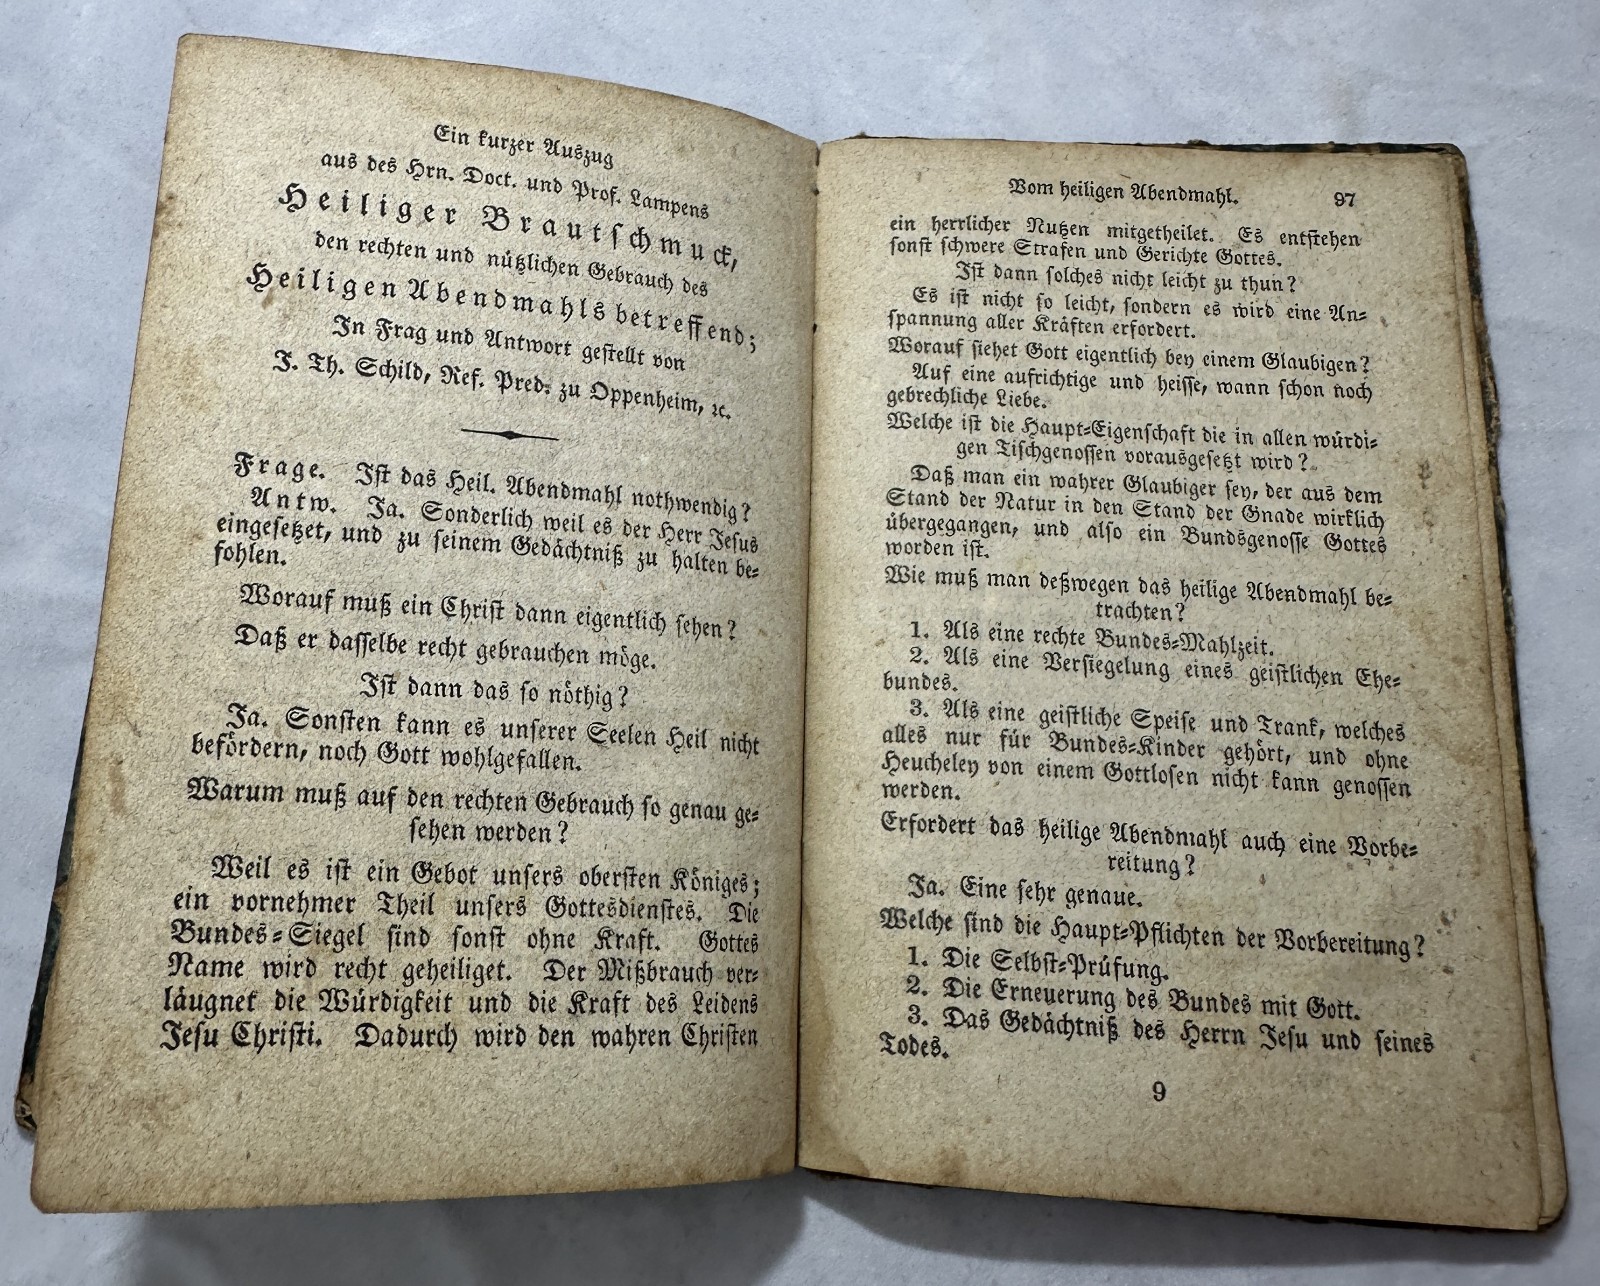 Ein kurzer Auszug
aus des Hrn. Doct. und Prof. Lampens
Heiliger Brautschmuck,
den rechten und nützlichen Gebrauch des
Heiligen Abendmahls betreffend;
In Frag und Antwort gestellt von
J. Th. Schild, Ref. Pred. zu Oppenheim, ꝛc.
Frage. Ist das Heil. Abendmahl nothwendig?
Antw. Ja. Sonderlich weil es der Herr Jesus
eingesetzet, und zu seinem Gedächtniß zu halten be=
fohlen.
Worauf muß ein Christ dann eigentlich sehen?
Daß er dasselbe recht gebrauchen möge.
Ist dann das so nöthig?
Ja. Sonsten kann es unserer Seelen Heil nicht
befördern, noch Gott wohlgefallen.
Warum muß auf den rechten Gebrauch so genau ge=
sehen werden?
Weil es ist ein Gebot unsers obersten Königes;
ein vornehmer Theil unsers Gottesdienstes. Die
Bundes=Siegel sind sonst ohne Kraft. Gottes
Name wird recht geheiliget. Der Mißbrauch ver=
läugnet die Würdigkeit und die Kraft des Leidens
Jesu Christi. Dadurch wird den wahren Christen
Vom heiligen Abendmahl. 97
ein herrlicher Nutzen mitgetheilet. Es entstehen
sonst schwere Strafen und Gerichte Gottes.
Ist dann solches nicht leicht zu thun?
Es ist nicht so leicht, sondern es wird eine An=
spannung aller Kräften erfordert.
Worauf siehet Gott eigentlich bey einem Glaubigen?
Auf eine aufrichtige und heisse, wann schon noch
gebrechliche Liebe.
Welche ist die Haupt=Eigenschaft die in allen würdi=
gen Tischgenossen vorausgesetzt wird?
Daß man ein wahrer Glaubiger sey, der aus dem
Stand der Natur in den Stand der Gnade wirklich
übergegangen, und also ein Bundsgenosse Gottes
worden ist.
Wie muß man deßwegen das heilige Abendmahl be=
trachten?
1. Als eine rechte Bundes=Mahlzeit.
2. Als eine Versiegelung eines geistlichen Ehe=
bundes.
3. Als eine geistliche Speise und Trank, welches
alles nur für Bundes=Kinder gehört, und ohne
Heucheley von einem Gottlosen nicht kann genossen
werden.
Erfordert das heilige Abendmahl auch eine Vorbe=
reitung?
Ja. Eine sehr genaue.
Welche sind die Haupt=Pflichten der Vorbereitung?
1. Die Selbst=Prüfung.
2. Die Erneuerung des Bundes mit Gott.
3. Das Gedächtniß des Herrn Jesu und seines
Todes.
9